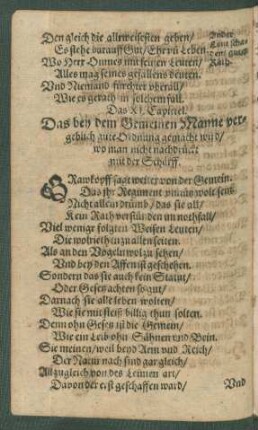 Den gleich die allweisesten geben/
Es stehe darauff Gut/ Ehr uñ Leben.
Wo Herr Omnes mit seinen Leuten/
Alles mag seines gefallens deuten.
Und Niemand fürchtet uberall/
Wie es gerath in solchem fall.
Das XI. Capitel.
Das bey dem Gemeinen Manne ver-
geblich gute Ordnung gemacht wird/
wo man nicht nachdruckt
mit der Schärff.
GRawkopff sagt weiter von der Gemein.
Das ihr Regiment nichts wolt sein
Nicht allein drumb/ das sie all/
Kein Rath verstünden im nothfall/
Viel wenige folgten Weisen Leuten/
Die wol riethen zu allen seiten.
Als an den Vögeln wol zu sehen/
Und bey den Affen ist geschehen.
Sondern das sie auch kein Statut/
Oder Gesetz achten so gut/
Darnach sie alle leben wolten/
Wie sie mit fleiß billig thun solten.
Denn ohn Gesetz ist die Gemein/
Wie ein Leib ohn Sähnen und Bein.
Sie meinen/ weil beyd Arm und Reich/
Der Natur nach sind gar gleich/
All zugleich von des Leimen art/
Davon der erst geschaffen ward/
Und